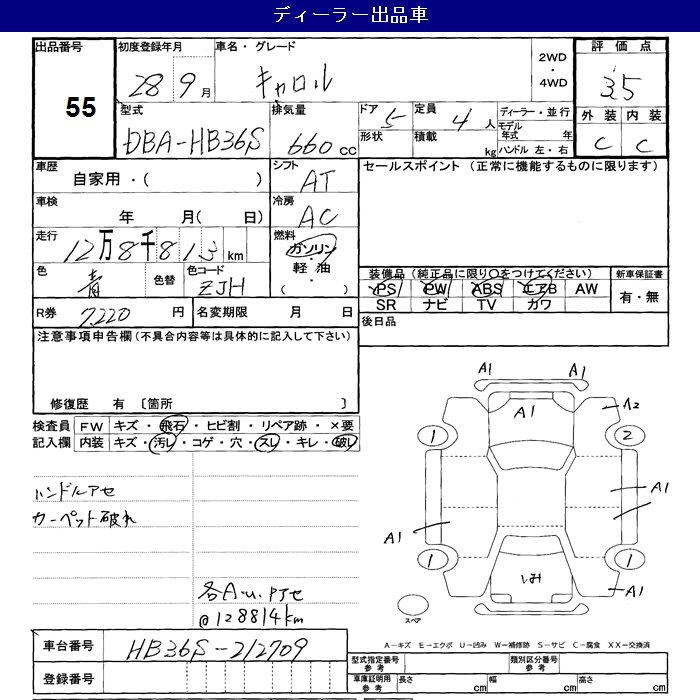 ディーラー出品車
出品番号 初度登録年月 車名・グレード 2WD ・ 4WD 評価点
55 28 9月 キャロル 3.5
型式 排気量 ドア 5 定員 4人 ディーラー・並行 外装 内装
DBA-HB36S 660cc 形状 積載 kg モデル年式 年 C C
ハンドル 左・右
車歴 シフト セールスポイント (正常に機能するものに限ります)
自家用・( ) AT
車検 冷房
年 月( 日) AC
走行 燃料
12万8千813km ガソリン・軽油・( )
色 色替 色コード 装備品 (純正品に限り○をつけてください) 新車保証書
青 ZJH PS PW ABS エアB AW 有・無
SR ナビ TV カワ
R券 7220円 名変期限 月 日 後日品
注意事項申告欄(不具合内容等は具体的に記入して下さい)
修復歴 有 〔箇所 〕
検査員 FW キズ・飛石・ヒビ割・リペア跡・×要
記入欄 内装 キズ・汚レ・コゲ・穴・スレ・キレ・破レ
ハンドルアセ
カーペット破れ
各A・U.アせ
@128814km
A1 A1
A1 A2
1 2
A1
A1
1 1
しみ A1
スペア
A-キズ E-エクボ U-凹み W-補修跡 S-サビ C-腐食 XX-交換済
車台番号 HB36S-212709
型式指定番号 参考 類別区分番号 参考
登録番号 車庫証明用 参考 長さ cm 幅 cm 高さ cm